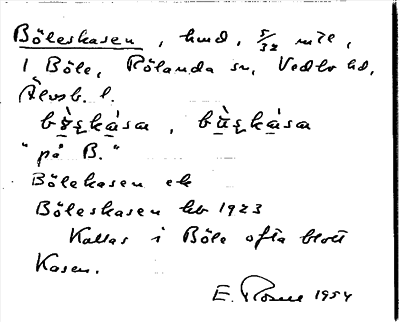 Böleskasen, hmd, 5/32 mtl,
1 Böle, Rölanda sn, Vedbo hd,
Älvsb. l.
"på B."
Bölekasen ek
Böleskasen hb 1923
Kallas i Böle ofta blott
Kasen.
E. 1954